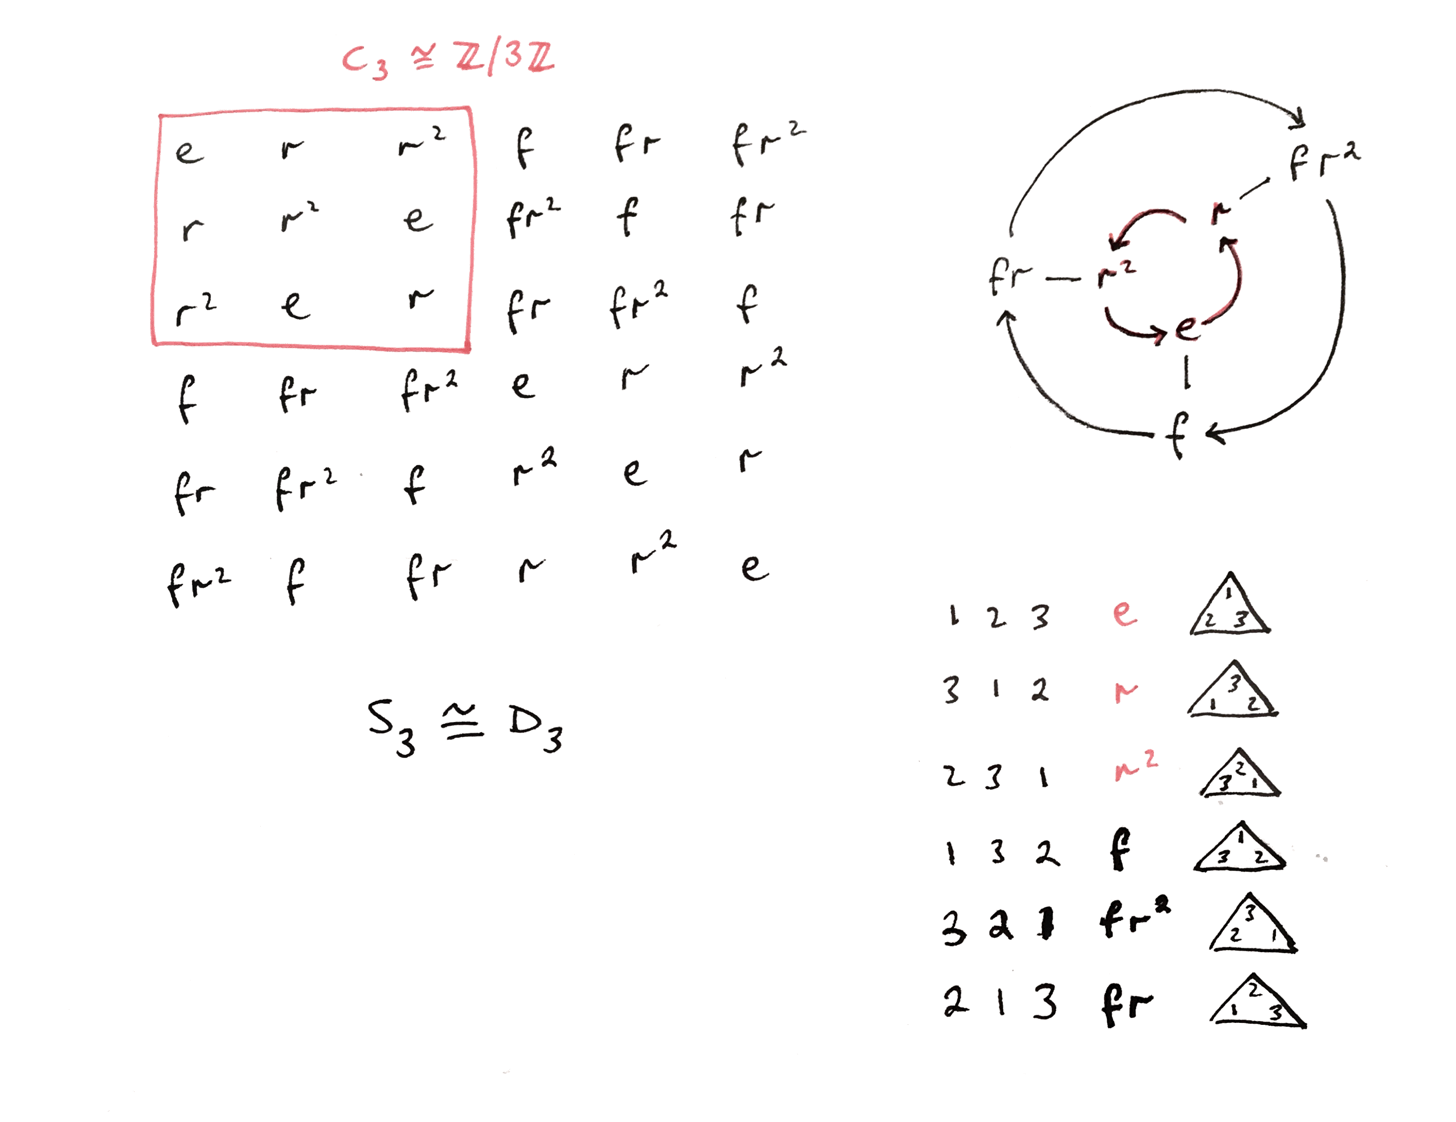 C₃ ≅ ℤ/3ℤ
e r r² f fr fr²
r r² e fr² f fr
r² e r fr fr² f
f fr fr² e r r²
fr fr² f r² e r
fr² f fr r r² e
S₃ ≅ D₃
fr²
r
fr r²
e
f
1 2 3 e 1
2 3
3 1 2 r 3
1 2
2 3 1 r² 2
3 1
1 3 2 f 1
3 2
3 2 1 fr² 3
2 1
2 1 3 fr 2
1 3